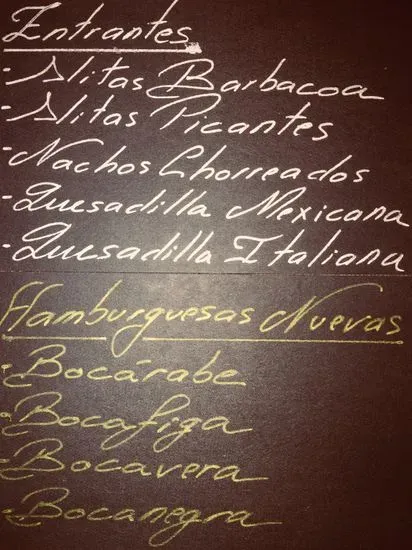 Entrantes
- Alitas Barbacoa
- Alitas Picantes
- Nachos Chorreados
- Quesadilla Mexicana
- Quesadilla Italiana
Hamburguesas Nuevas
- Bocárabe
- Bocafiga
- Bocavera
- Bocanegra